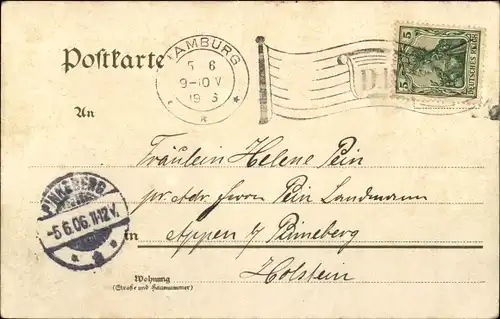 Postkarte
HAMBURG
5 6
9-10 V
19 6
5
5
DEUTSCHES REICH
An
Fräulein Helene Pein
pr. Adr. Herrn Pein Landmann
in
Appen b/ Pinneberg
Holstein
PINNEBERG
-5.6.06.11-12V.
Wohnung
(Straße und Hausnummer)